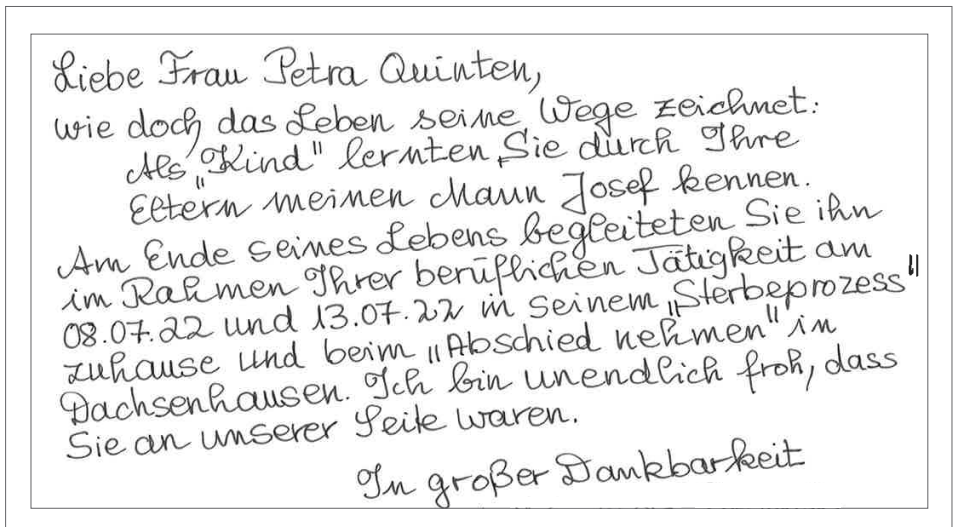 Liebe Frau Petra Quinten,
wie doch das Leben seine Wege zeichnet:
Als „Kind" lernten Sie durch Ihre
Eltern meinen Mann Josef kennen.
Am Ende seines Lebens begleiteten Sie ihn
im Rahmen Ihrer beruflichen Tätigkeit am
08.07.22 und 13.07.22 in seinem „Sterbeprozess"
zuhause und beim „Abschied nehmen" in
Dachsenhausen. Ich bin unendlich froh, dass
Sie an unserer Seite waren.
In großer Dankbarkeit